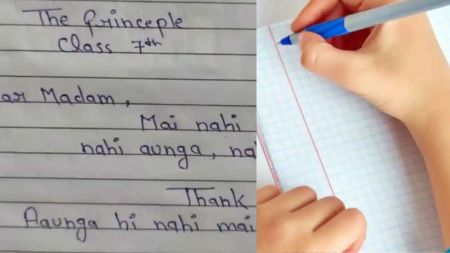 The Princeple
Class 7th
ar Madam ,
Mai nahi
nahi aunga , na
Thank
Aaunga hi nahi mai